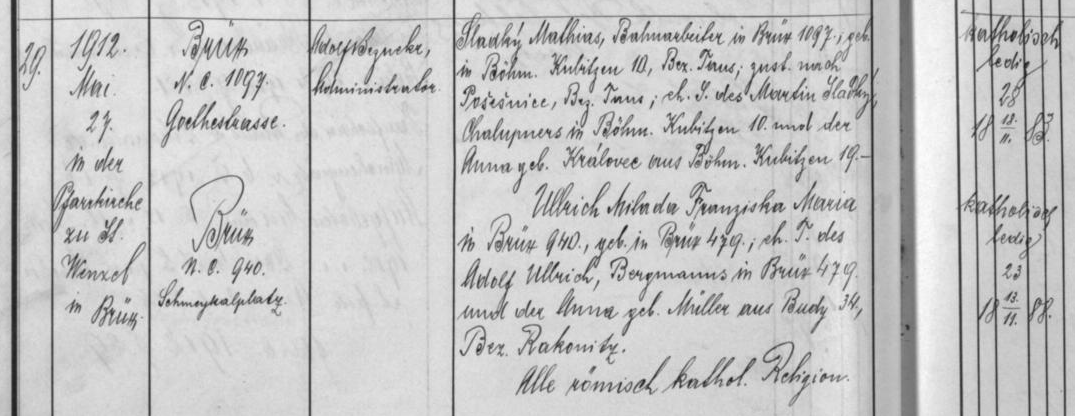 29.
1912.
Mai.
27.
in der
Pfarrkirche
zu St.
Wenzel
in Brüx.
Brüx
N. C. 1097.
Goethestrasse.
Brüx
N. C. 940.
Schmeykalplatz.
Adolf
Administrator.
Sladký Mathias, Bahnarbeiter in Brüx 1097.; geb.
in Böhm. Kubitzen 10, Bez. Taus; zust. nach
Bez. Taus; eh. S. des Martin Sladký,
Chalupners in Böhm. Kubitzen 10. und der
Anna geb. Královec aus Böhm. Kubitzen 19.-
Ullrich Milada Franziska Maria
in Brüx 940., geb. in Brüx 479.; eh. T. des
Adolf Ullrich, Bergmanns in Brüx 479.
und der Anna geb. Müller aus Budy 34,
Bez. Rakonitz.
Alle römisch kathol. Religion.
katholisch
ledig
28
18 13. 11. 83.
katholisch
ledig
23
18 13. 11. 88.